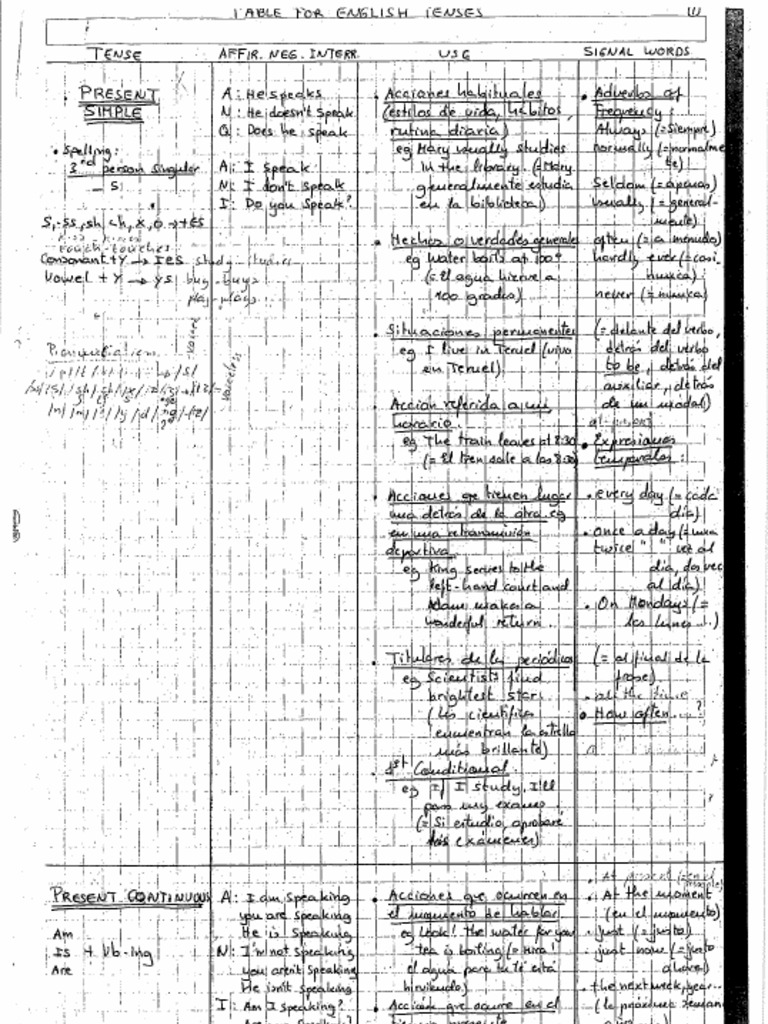 TABLE FOR ENGLISH TENSES
TENSE
AFFIR. NEG. INTERR.
USE
SIGNAL WORDS
PRESENT
SIMPLE
• Spelling:
3rd person singular
– S
S, -ss, sh, ch, x, o → +ES
touch-touches
Consonant + Y → IES study - studies
Vowel + Y → YS buy - buys
play - plays
voiceless
A: He speaks
N: He doesn't speak
Q: Does he speak
A: I speak
N: I don't speak
I: Do you speak?
• Acciones habituales
(estilos de vida, hábitos,
rutina diaria)
eg Mary usually studies
in the library. (= Mary
generalmente estudia
en la biblioteca)
• Hechos o verdades generales
eg Water boils at 100º
(= El agua hierve a
100 grados)
• Situaciones permanentes
eg I live in Teruel (vivo
en Teruel)
• Acción referida a un
horario.
eg The train leaves at 8:30
(= El tren sale a las 8:30)
• Acciones que tienen lugar
una detrás de la otra. eg
en una retransmisión
deportiva.
eg King serves to the
left-hand court and
makes a
wonderful return.
• Titulares de periódico
eg Scientists find
brightest star.
(Los científicos
encuentran la estrella
más brillante)
• 1st Conditional
eg If I study, I'll
pass my exams
(= Si estudio, aprobaré
los exámenes)
• Adverbs of
Frequency:
Always (= Siempre)
normally (= normalme
te)
Seldom (= apenas)
usually (= general-
mente)
often (= a menudo)
hardly ever (= casi
nunca)
never (= nunca)
(= delante del verbo,
detrás del verbo
to be, detrás del
auxiliar, detrás
de un modal)
• Expresiones
temporales:
• every day (= cada
día)
• once a day (= una
twice " " vez al
día, dos vec
al día)
• On Mondays (=
los lunes...)
(= al final de la
frase)
• all the time
• How often...?
PRESENT CONTINUOUS
Am
Is + Vb-ing
Are
A: I am speaking
you are speaking
He is speaking
N: I'm not speaking
you aren't speaking
He isn't speaking
I: Am I speaking?
• Acciones que ocurren en
el momento de hablar
eg Look! the water for your
tea is boiling (= mira!
el agua para tu té está
hirviendo)
• Acción que ocurre en el
• At the moment
(en el momento)
• just (= justo)
• just now (= justo
ahora)
• the next week, year...
(la próxima semana